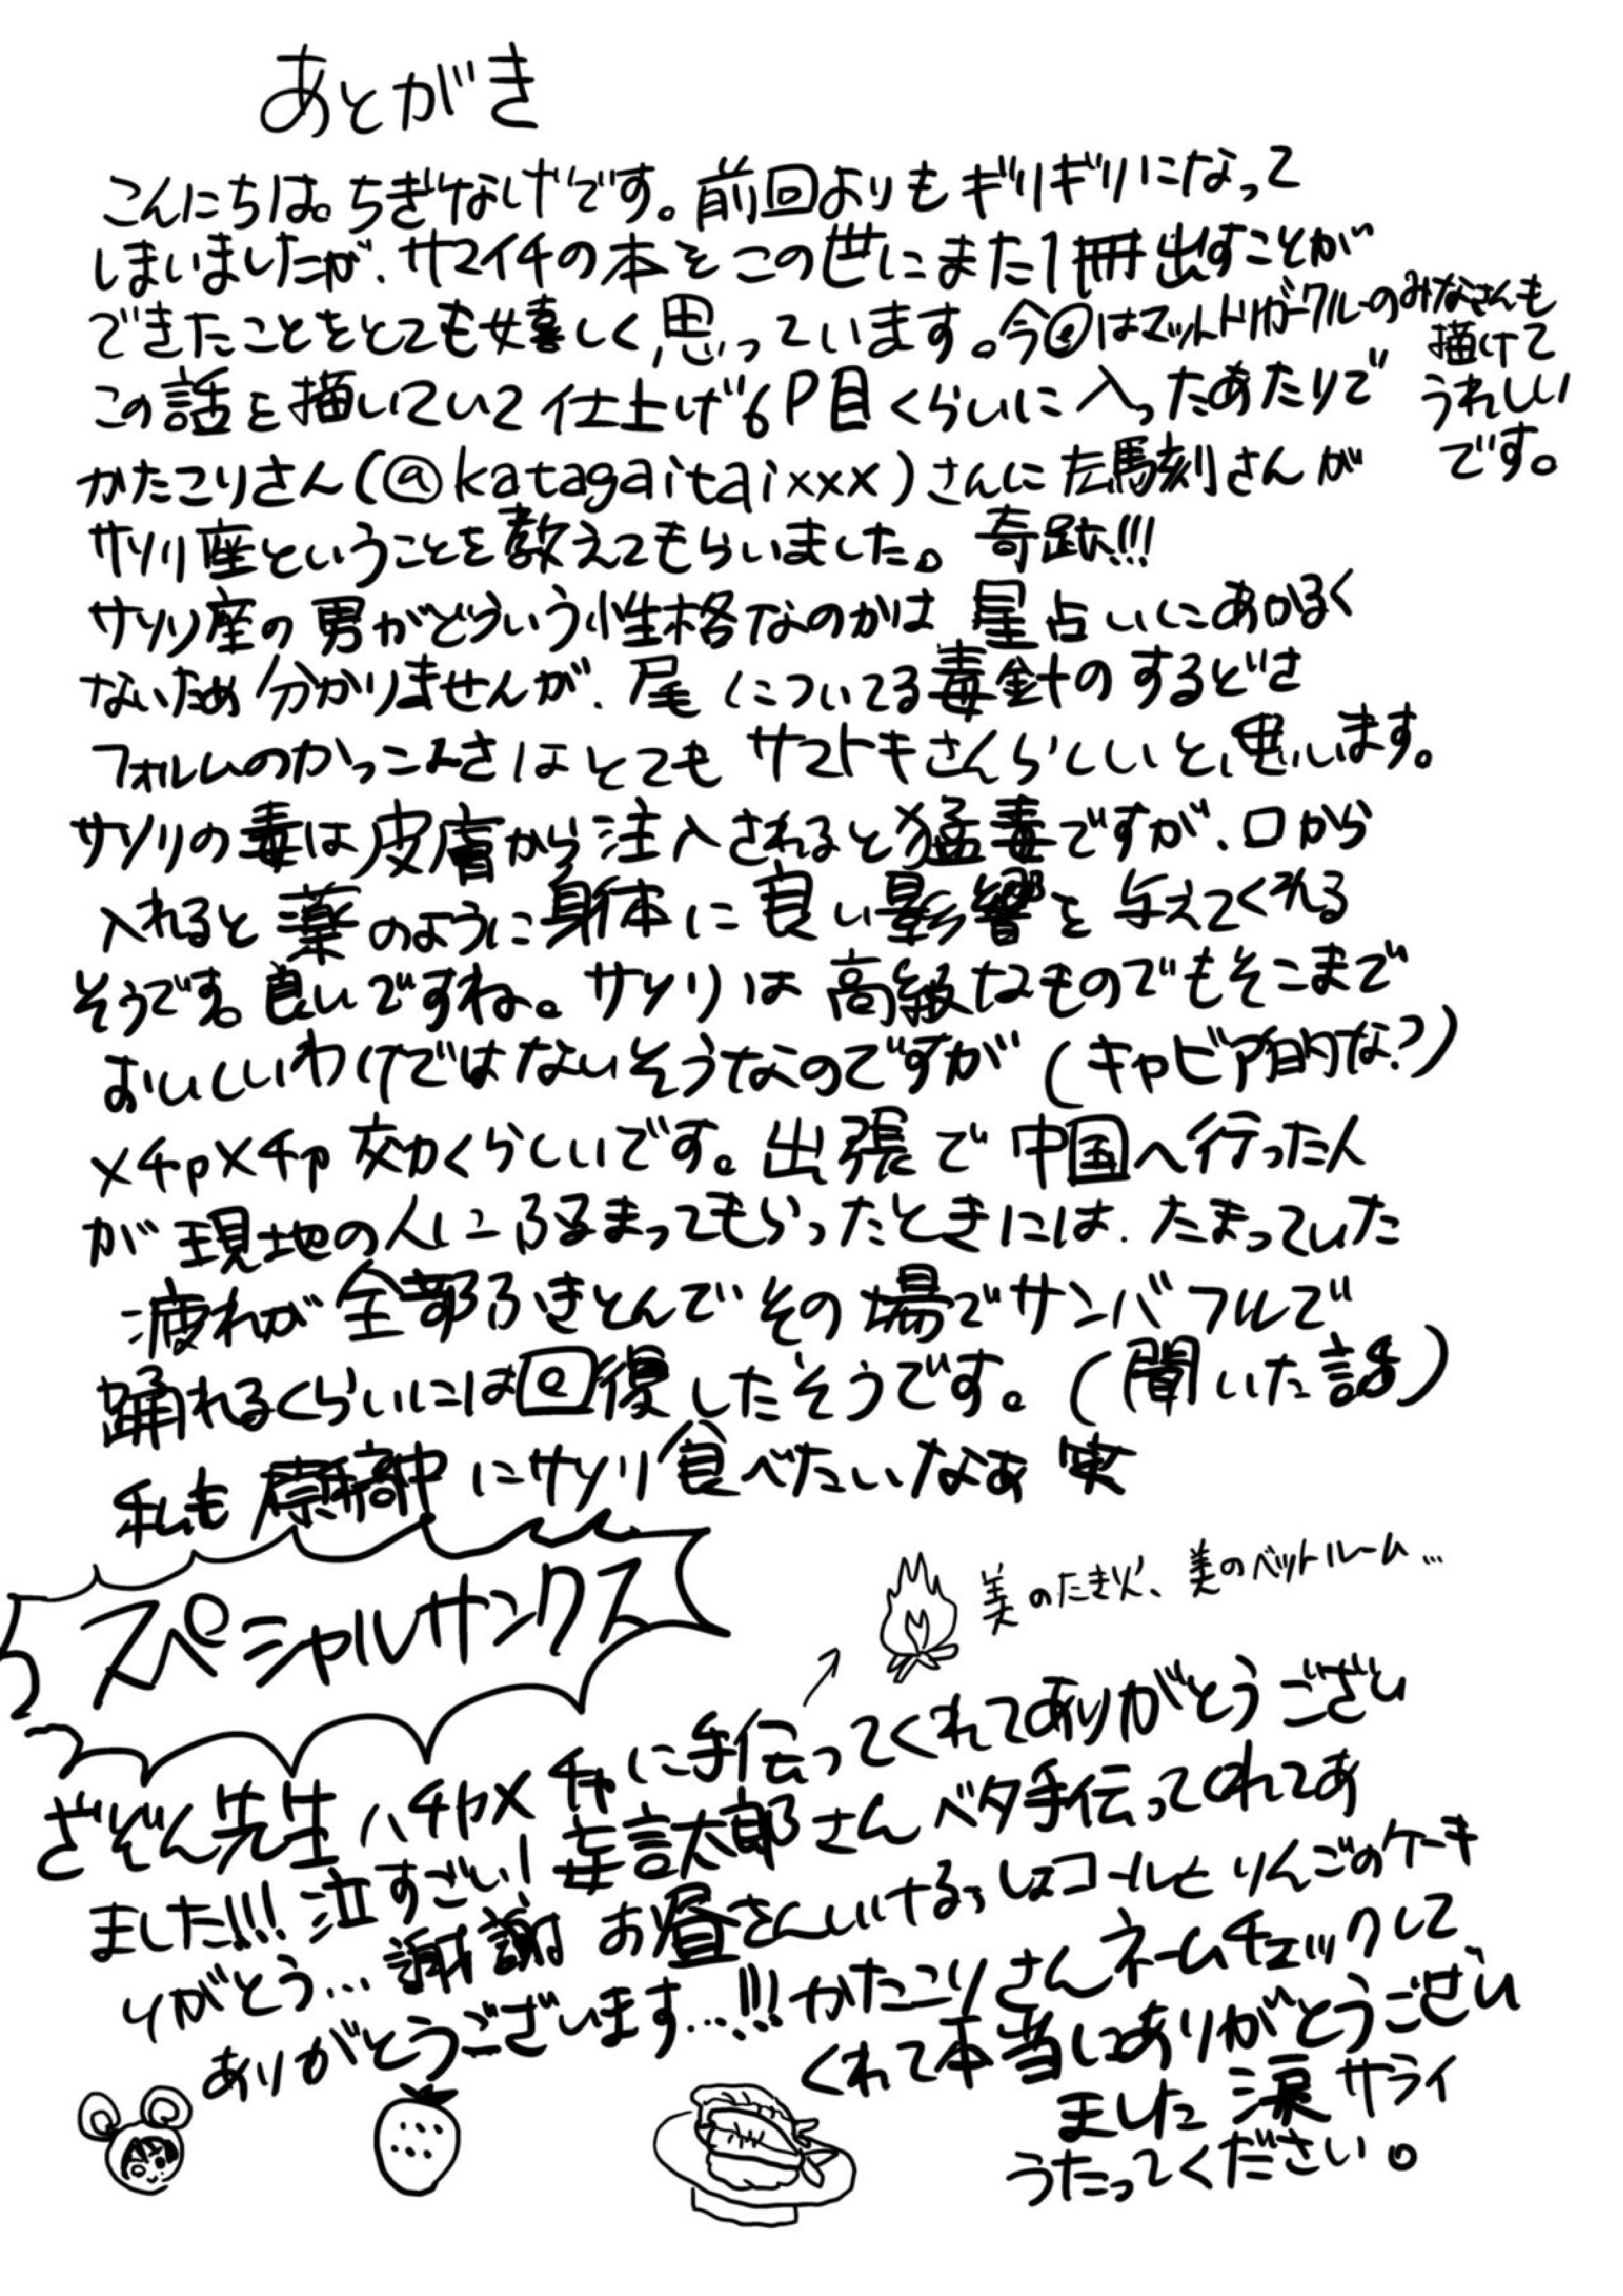 あとがき
こんにちは。ちぎなげです。前回よりもギリギリになって
しまいましたが、サマイチの本をこの世にまた1冊出すことが
できたことをとても嬉しく思っています。今回はマットトリガークルーのみなさんも
描けて
うれしい
です。
この話を描いていて仕上げ6P目くらいに入ったあたりで
かたこりさん(@katagaitaixxx)さんに左馬刻さんが
サソリ座ということを教えてもらいました。奇跡!!!
サソリ座の男がどういう性格なのかは星占いにあかるく
ないため分かりませんが、尾についてる毒針のするどさ
フォルムのかっこよさはとてもサマトキさんらしいと思います。
サソリの毒は皮膚から注入されると猛毒ですが、口から
入れると薬のように身体に良い影響を与えてくれる
そうです。良いですね。サソリは高級なものでもそこまで
おいしいわけではないそうなのですが(キャビア的な?)
メチャメチャ効くらしいです。出張で中国へ行った人
が現地の人にふるまってもらったときには、たまっていた
疲れが全部ふきとんでその場でサンバフルで
踊れるくらいには回復したそうです。(聞いた話)
私も原稿中にサソリ食べたいなあ 笑
スペシャルサンクス
美のたき火、美のベットルーム…
ざぞん先生ハチャメチャに手伝ってくれてありがとうござい
ました!!!泣すごい!妄言太郎さんベタ手伝ってくれてあ
りがとう…謝謝 お昼さんいけるっしょコールとりんごのケーキ
ありがとうございます…!!!かたこりさんネームチェックして
くれて本当にありがとうござい
ました 涙 サライ
うたってください。